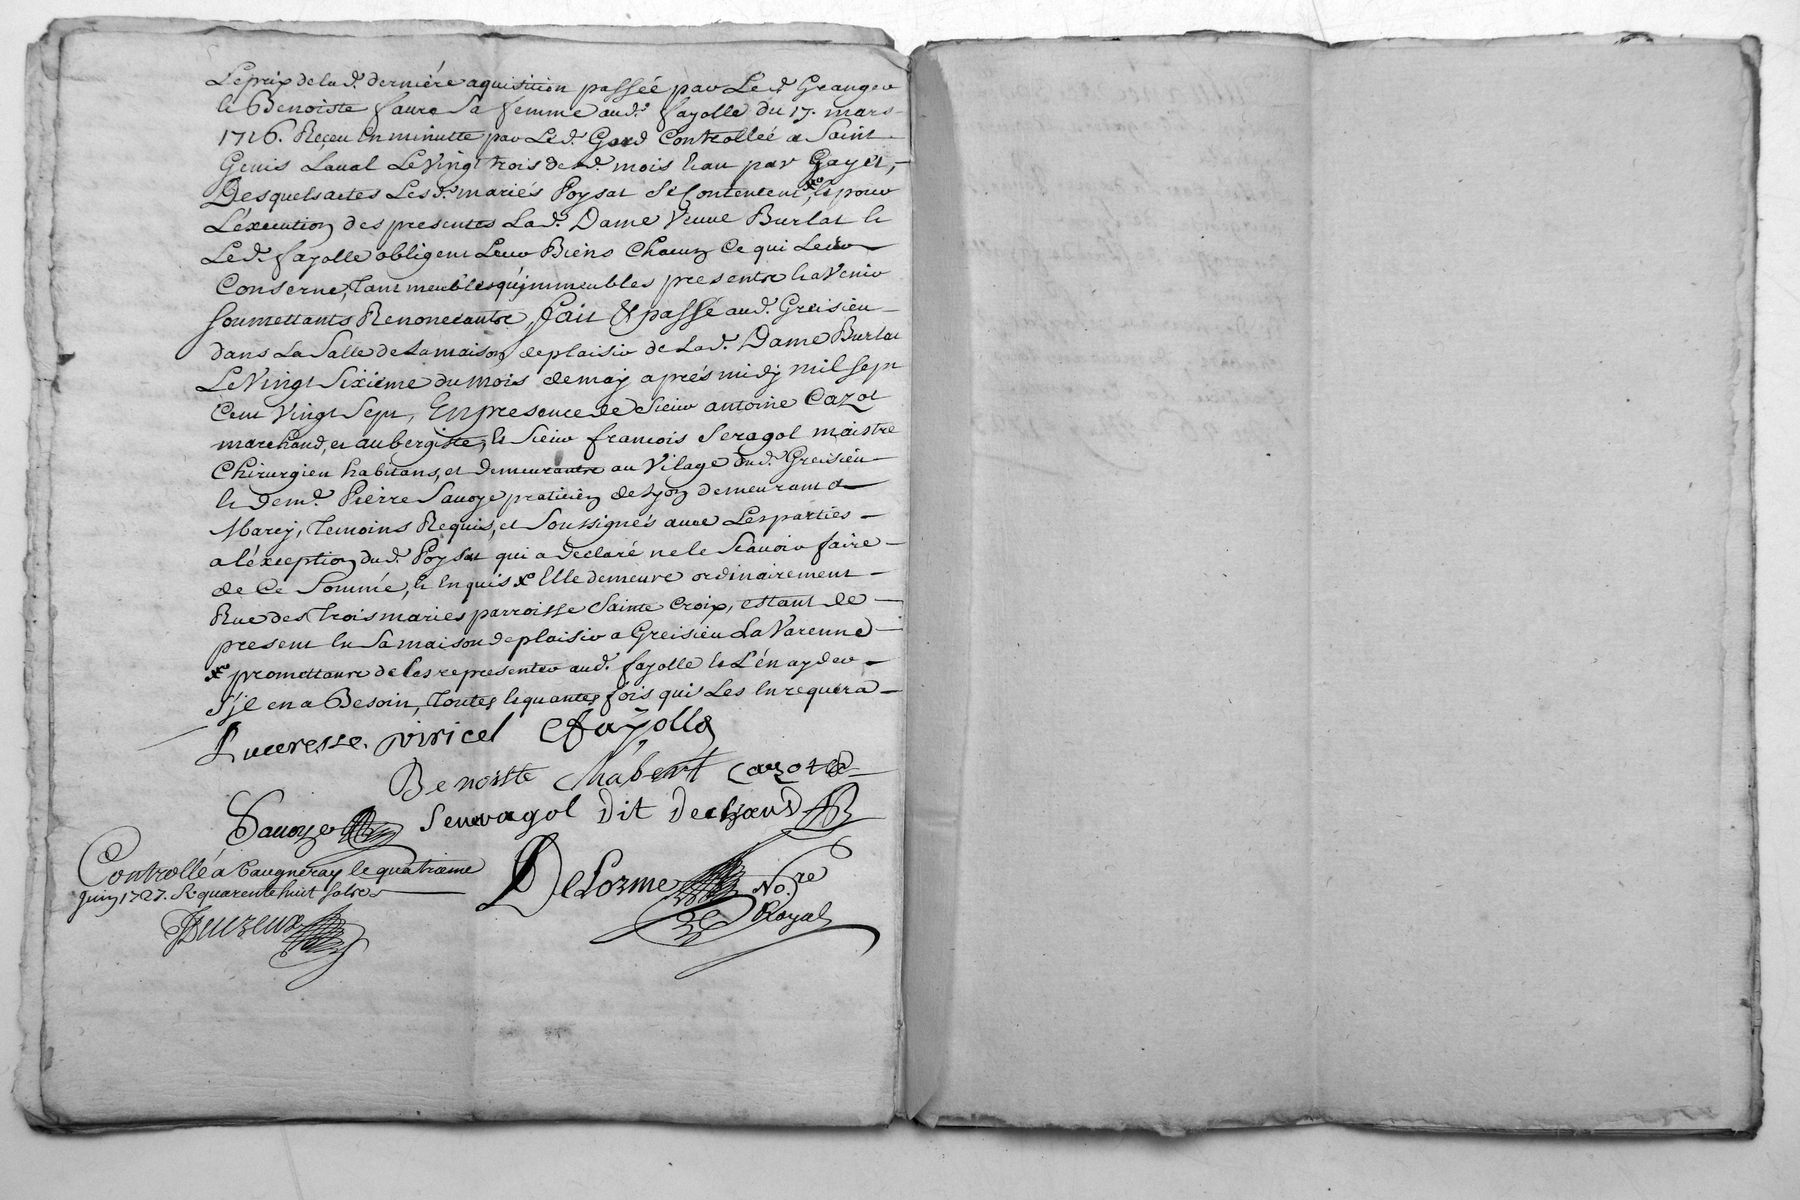 Le prix de la d. derniére aquisition passée par Le d. Granger
& Benoiste faure Sa femme aud. fayolle du 17. mars
1716. Reçeu En minutte par Le d. Gord Controlleé a Saint
Genis Laval Le Vingt trois de d. mois & an par Gayet,
Desquels actes Les d. mariés Poysat Se Contentent, & pour
L'éxecution des presentes La d. Dame Veuve Burlat &
Le d. fayolle obligent Leur Biens Chacun Ce qui Leur
Conserne, tant meubles qu'jmmeubles presents & a Venir
soumettants Renonceants, fait & passé aud. Greisieu
dans La Salle de La maison de plaisir de La d. Dame Burlat
Le Vingt Sixiéme du mois de may aprés midy mil sept
Cent Vingt Sept, En presence de Sieur antoine Cazot
marchand, et aubergiste, & Sieur francois Seragol maistre
Chirurgien habitans, et demeurants au Vilage dud. Greisieu
& dem. Pierre Savoye praticien de Lyon demeurant a
Marcy, temoins Requis, et Soussignés avec Les parties
a l'éxception dud. Poysat qui a declaré ne le Sçavoir faire
de Ce Sommé, & Enquis x Elle demeure ordinairement
Rue des trois maries parroisse Sainte Croix, estant de
present En Sa maison de plaisir a Greisieu La Varenne
x promettant de Les representer aud. fayolle & L'én ayder
s'jl en a Besoin, toutes & quantes fois qui Les En requera
Lucresse viricel fayolle
Benoiste Chabert Cazot
Savoye Seuvagol dit dechand
Controllé á Vaugneray le quatrieme DeLorme No.re
Juin 1727. R. quarente huit sols Royal